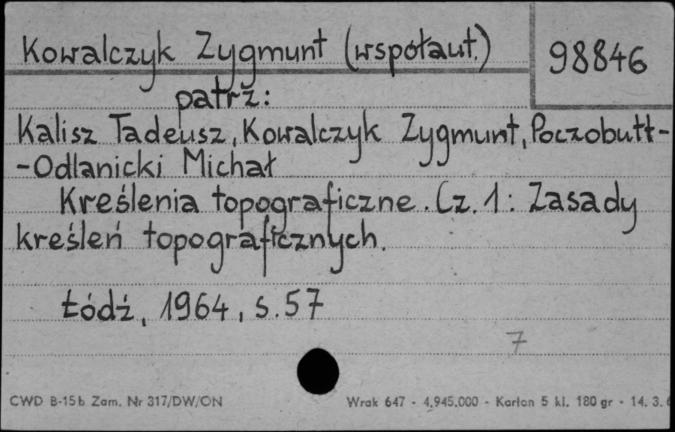 Kowalczyk Zygmunt (współaut.)
98846
patrz:
Kalisz Tadeusz, Kowalczyk Zygmunt, Poczobutt-
-Odlanicki Michał
Kreślenia topograficzne. Cz. 1: Zasady
kreśleń topograficznych.
Łódź, 1964, s. 57
7
CWD B-15b Zam. Nr 317/DW/ON
Wrak 647 - 4.945.000 - Karton 5 kl. 180 gr - 14. 3.